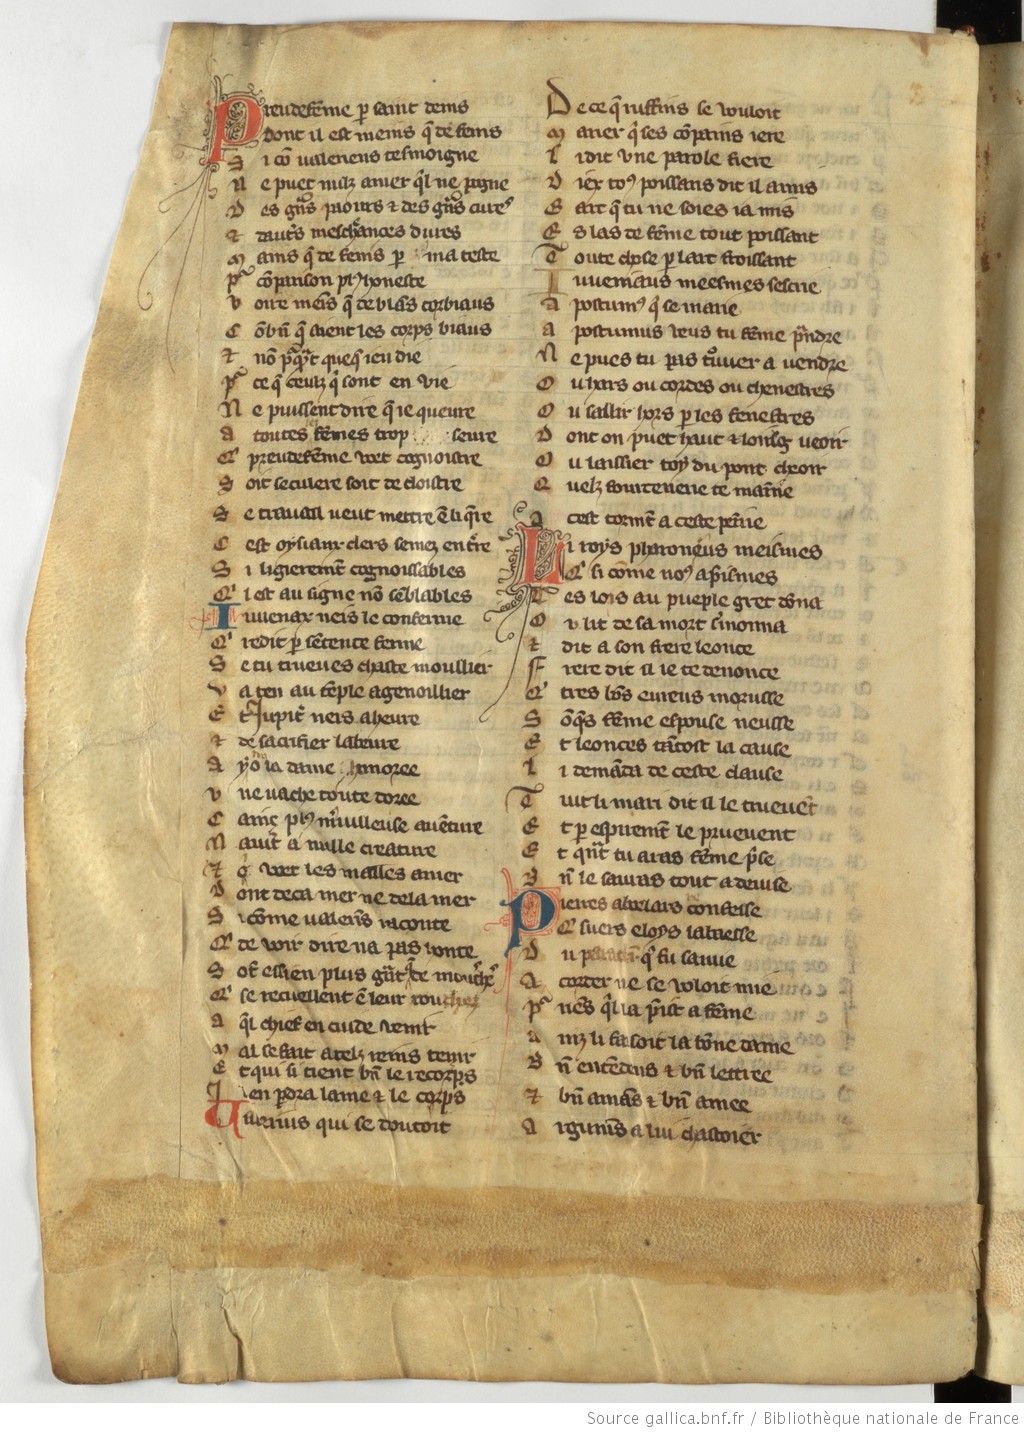 Preudefēme p saint denis
Dont il est meins q̄ de fenis
Si cō valeriens tesmoigne
Ne puet nulz amer q̄l ne pregne
Des gn̄s paours & des gn̄s cures
& dautrs meschances dures
Mains q̄ de fenis p ma teste
Pr cōparison plus honeste
Voire meīs q̄ de blās corbiaus
Cōbn̄ q̄ aient les corps biaus
Et nō
Pr ce q̄ ceulz q̄ sont en vie
Ne puissent dire q̄ ie queure
A toutes fēmes trop seure
Q' preudefēme
Soit seculere soit de cloistre
Se travail veut mettre ē li q̄re
Cest oysiaux clers semez en t're
Si ligieremēt cognoissables
Q'l est au signe nō sēblables
Iuuenax neis le conferme
Q' redit p sentence ferme
Se tu trueues chaste moullier
Va ten au tēple agenoillier
Et Iupit' neis aheure
& de sacrifier labeure
A la dame
Vne vache toute doree
Cainc plus m'uilleuse auēture
Nauīt a nulle creature
les malles amer
Dont deca mer ne dela mer
Si cōme valeriūs raconte
Q' de voir dire na pas honte
Sōt essien plus gn̄t de mouches
Q' se recuellent ē leur rouches
A q̄l chief en cuide venir
Mal se fait a telz reins tenir
Et qui si tient bn̄ le recorps
Ien pdra lame & le corps
qui se doutoit
De ce q̄ ruffins se vouloit
Marier q̄ ses cōpains iere
Li dit vne parole fiere
Diex to9 poissans dit il amis
Gart q̄ tu ne soies ia mis
Es las de fēme tout poissant
Toute chose p lart froissant
Iuuenaus meesmes sescrie
A postum9 q̄ se marie
A postumus veus tu fēme p̄ndre
Ne pues tu pas t'ouuer a vendre
Ou hars ou cordes ou chenestres
Ou sallir hors p les fenestres
Dont on puet haut & loing veoir
Ou laissier toy du pont cheoir
Quelz fourcenerie te maīne
A cest tormēt a ceste peīne
Li roys pharoneus meismes
Q' si cōme no9 apsismes
Ses lois au pueple grec dōna
Ou lit de sa mort s'monna
& dit a son frere leonce
Frere dit il ie te denonce
Q' tres bōs eureus morusse
Sōq̄s fēme espouse neusse
Et leonces tātost la cause
Li demāda de ceste clause
Tuit li mari dit il le trueuēt
Et p esprimēt le prueuent
Et qn̄t tu aras fēme p̄se
Bn̄ le sauras tout a deuise
Pierres abelars confesse
Q' suers eloys labaesse
Du q̄ fu samie
Acorder ne se voloit mie
Pr nēs q̄l la p̄ist a fēme
Ainz li faisoit la bōne dame
Bn̄ entēdens & bn̄ lettree
& bn̄ amās & bn̄ amee
Argumēs a lui chastoier
Source gallica.bnf.fr / Bibliothèque nationale de France